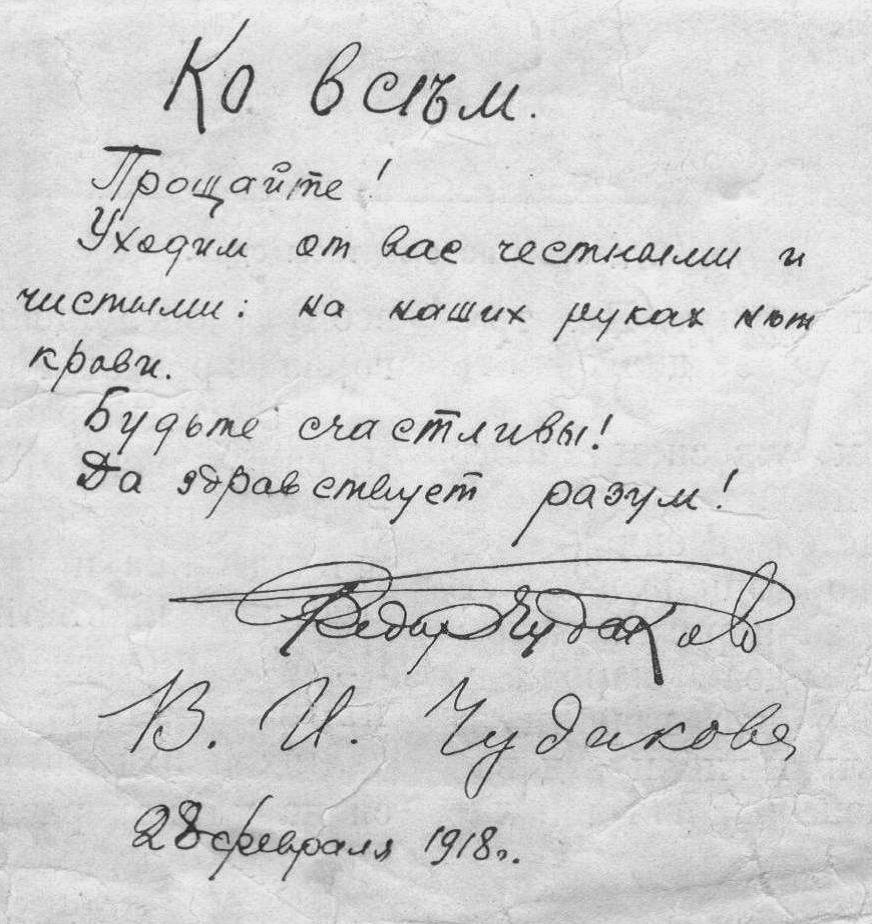 Ко всѣм.
Прощайте!
Уходим от вас честными и
чистыми: на наших руках нѣт
крови.
Будьте счастливы!
Да здравствует разум!
Федор Чудаков
В. И. Чудакова
28 февраля 1918 г.